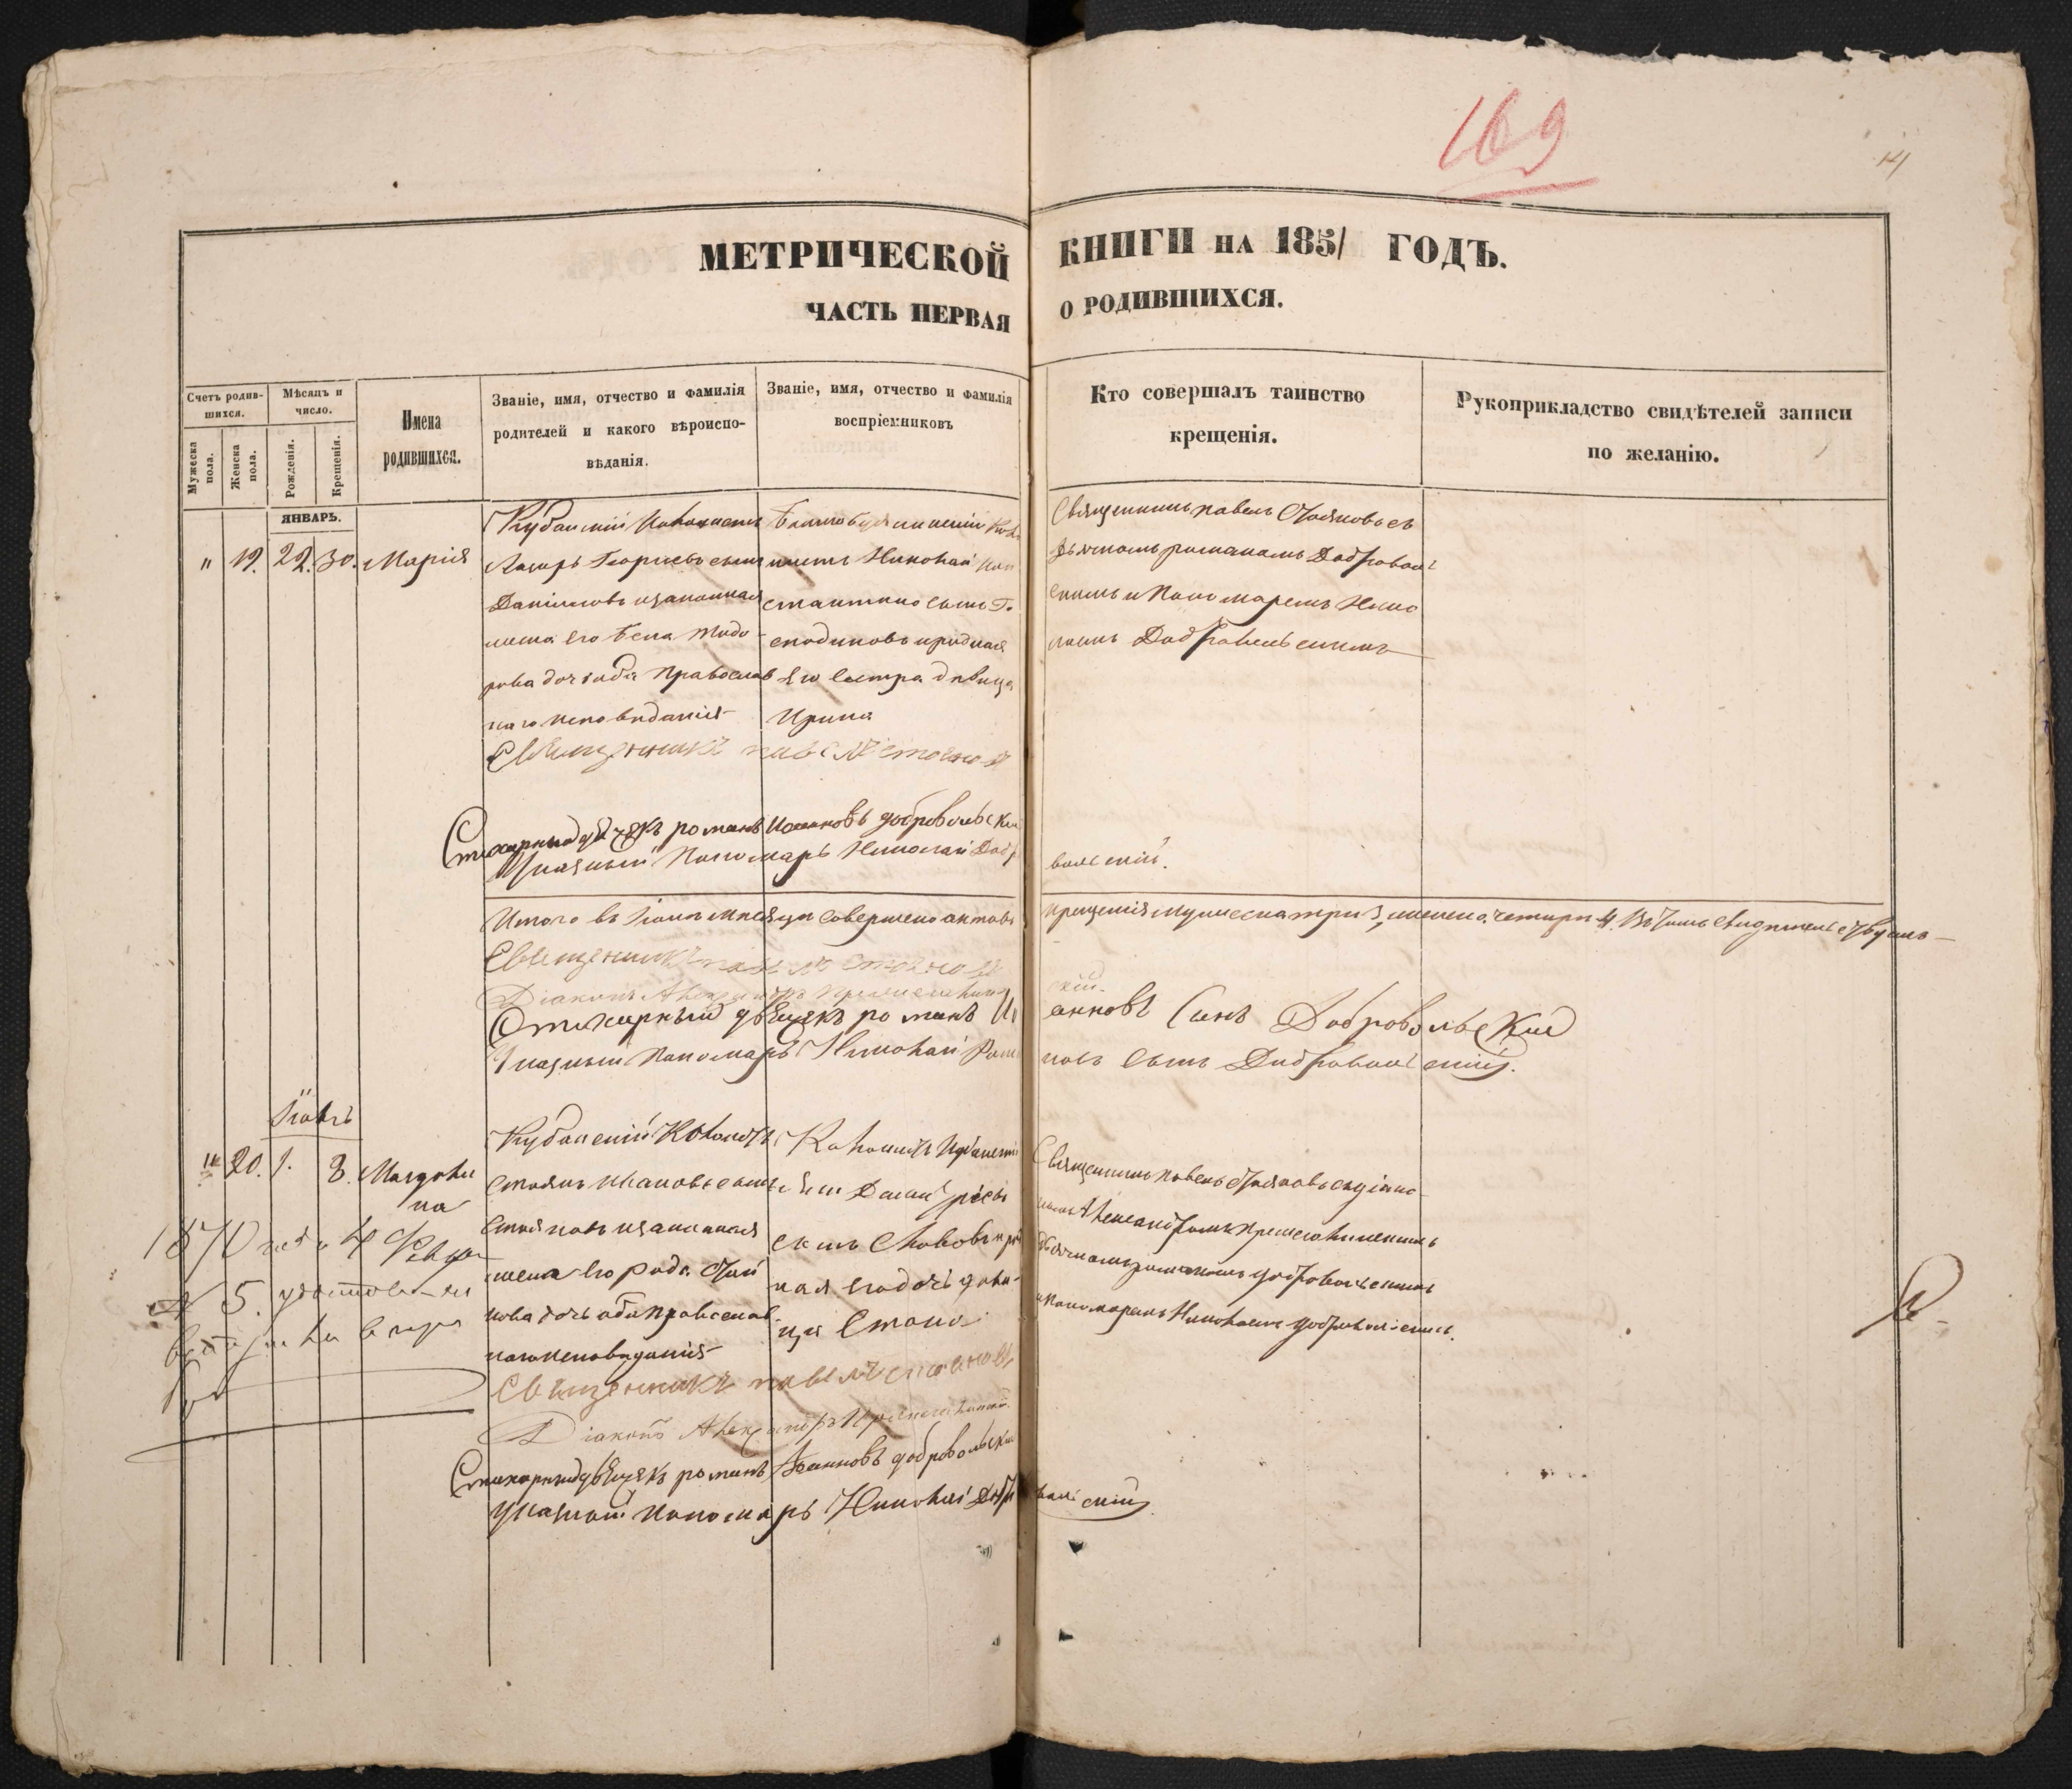 169
14
МЕТРИЧЕСКОЙ КНИГИ НА 1851 ГОДЪ.
ЧАСТЬ ПЕРВАЯ О РОДИВШИХСЯ.
Счетъ родив-
шихся.
Мужеска пола.
Женска пола.
Мѣсяцъ и
число.
Рожденія.
Крещенія.
Имена
родившихся.
Званіе, имя, отчество и фамилія
родителей и какого вѣроиспо-
вѣданія.
Званіе, имя, отчество и фамилія
воспріемниковъ
Кто совершалъ таинство
крещенія.
Рукоприкладство свидѣтелей записи
по желанію.
ЯНВАРЬ.
" 19. 22. 30. Марія
Кубайскій Колонистъ
Лазарь Георгіевъ сынъ
Даніиловъ изаконная
жена его Бела Тодо-
рова дочь оба Православ
наго исповѣданія
нистъ Николай Кон
стантиновъ сынъ Го
сподиновъ иродная
Его Сестра дѣвица
Ирина
Священникъ павелъ Стояновъ съ
Дьячкомъ романомъ Добровол
скимъ и Пономаремъ Нико
лаемъ Добровольскимъ
Священникъ павелъ стоянов
Стихарный дьячекъ романъ Иоанновъ добровольскій
Указный Пономарь Николай Добровольскій.
Итого въ маѣ мѣсяцѣ совершено актовъ крещенія мужеска три 3, женска четыри 4. Въ томъ свидѣтельствуемъ
Священникъ павелъ стояновъ
Діаконъ Александръ
Стихарный дьячекъ романъ Иоанновъ Синъ Добровольский
Указный Пономарь Николай Романовъ сынъ Добровольскій.
Іюнь
" 20. 1. 8. Магдали
на
Кубайскій Колонистъ
Стоянъ Ивановъ сынъ
Стояновъ изаконная
жена его Рада Стоя
нова дочь оба православ
наго исповѣданія
Колонистъ Кубайскій
дочь дѣви-
ца Стана
Священникъ павелъ Стояновъ съ діако-
номъ Александромъ
дьячкомъ романомъ добровольскимъ
и пономаремъ Николаемъ добровольскимъ.
1870 года 4 Февра
№ 5.
Священникъ павелъ стояновъ
Діаконъ Александръ
Стихарный дьячекъ романъ Иоанновъ добровольский
Указный Пономарь Николай Добровольскій